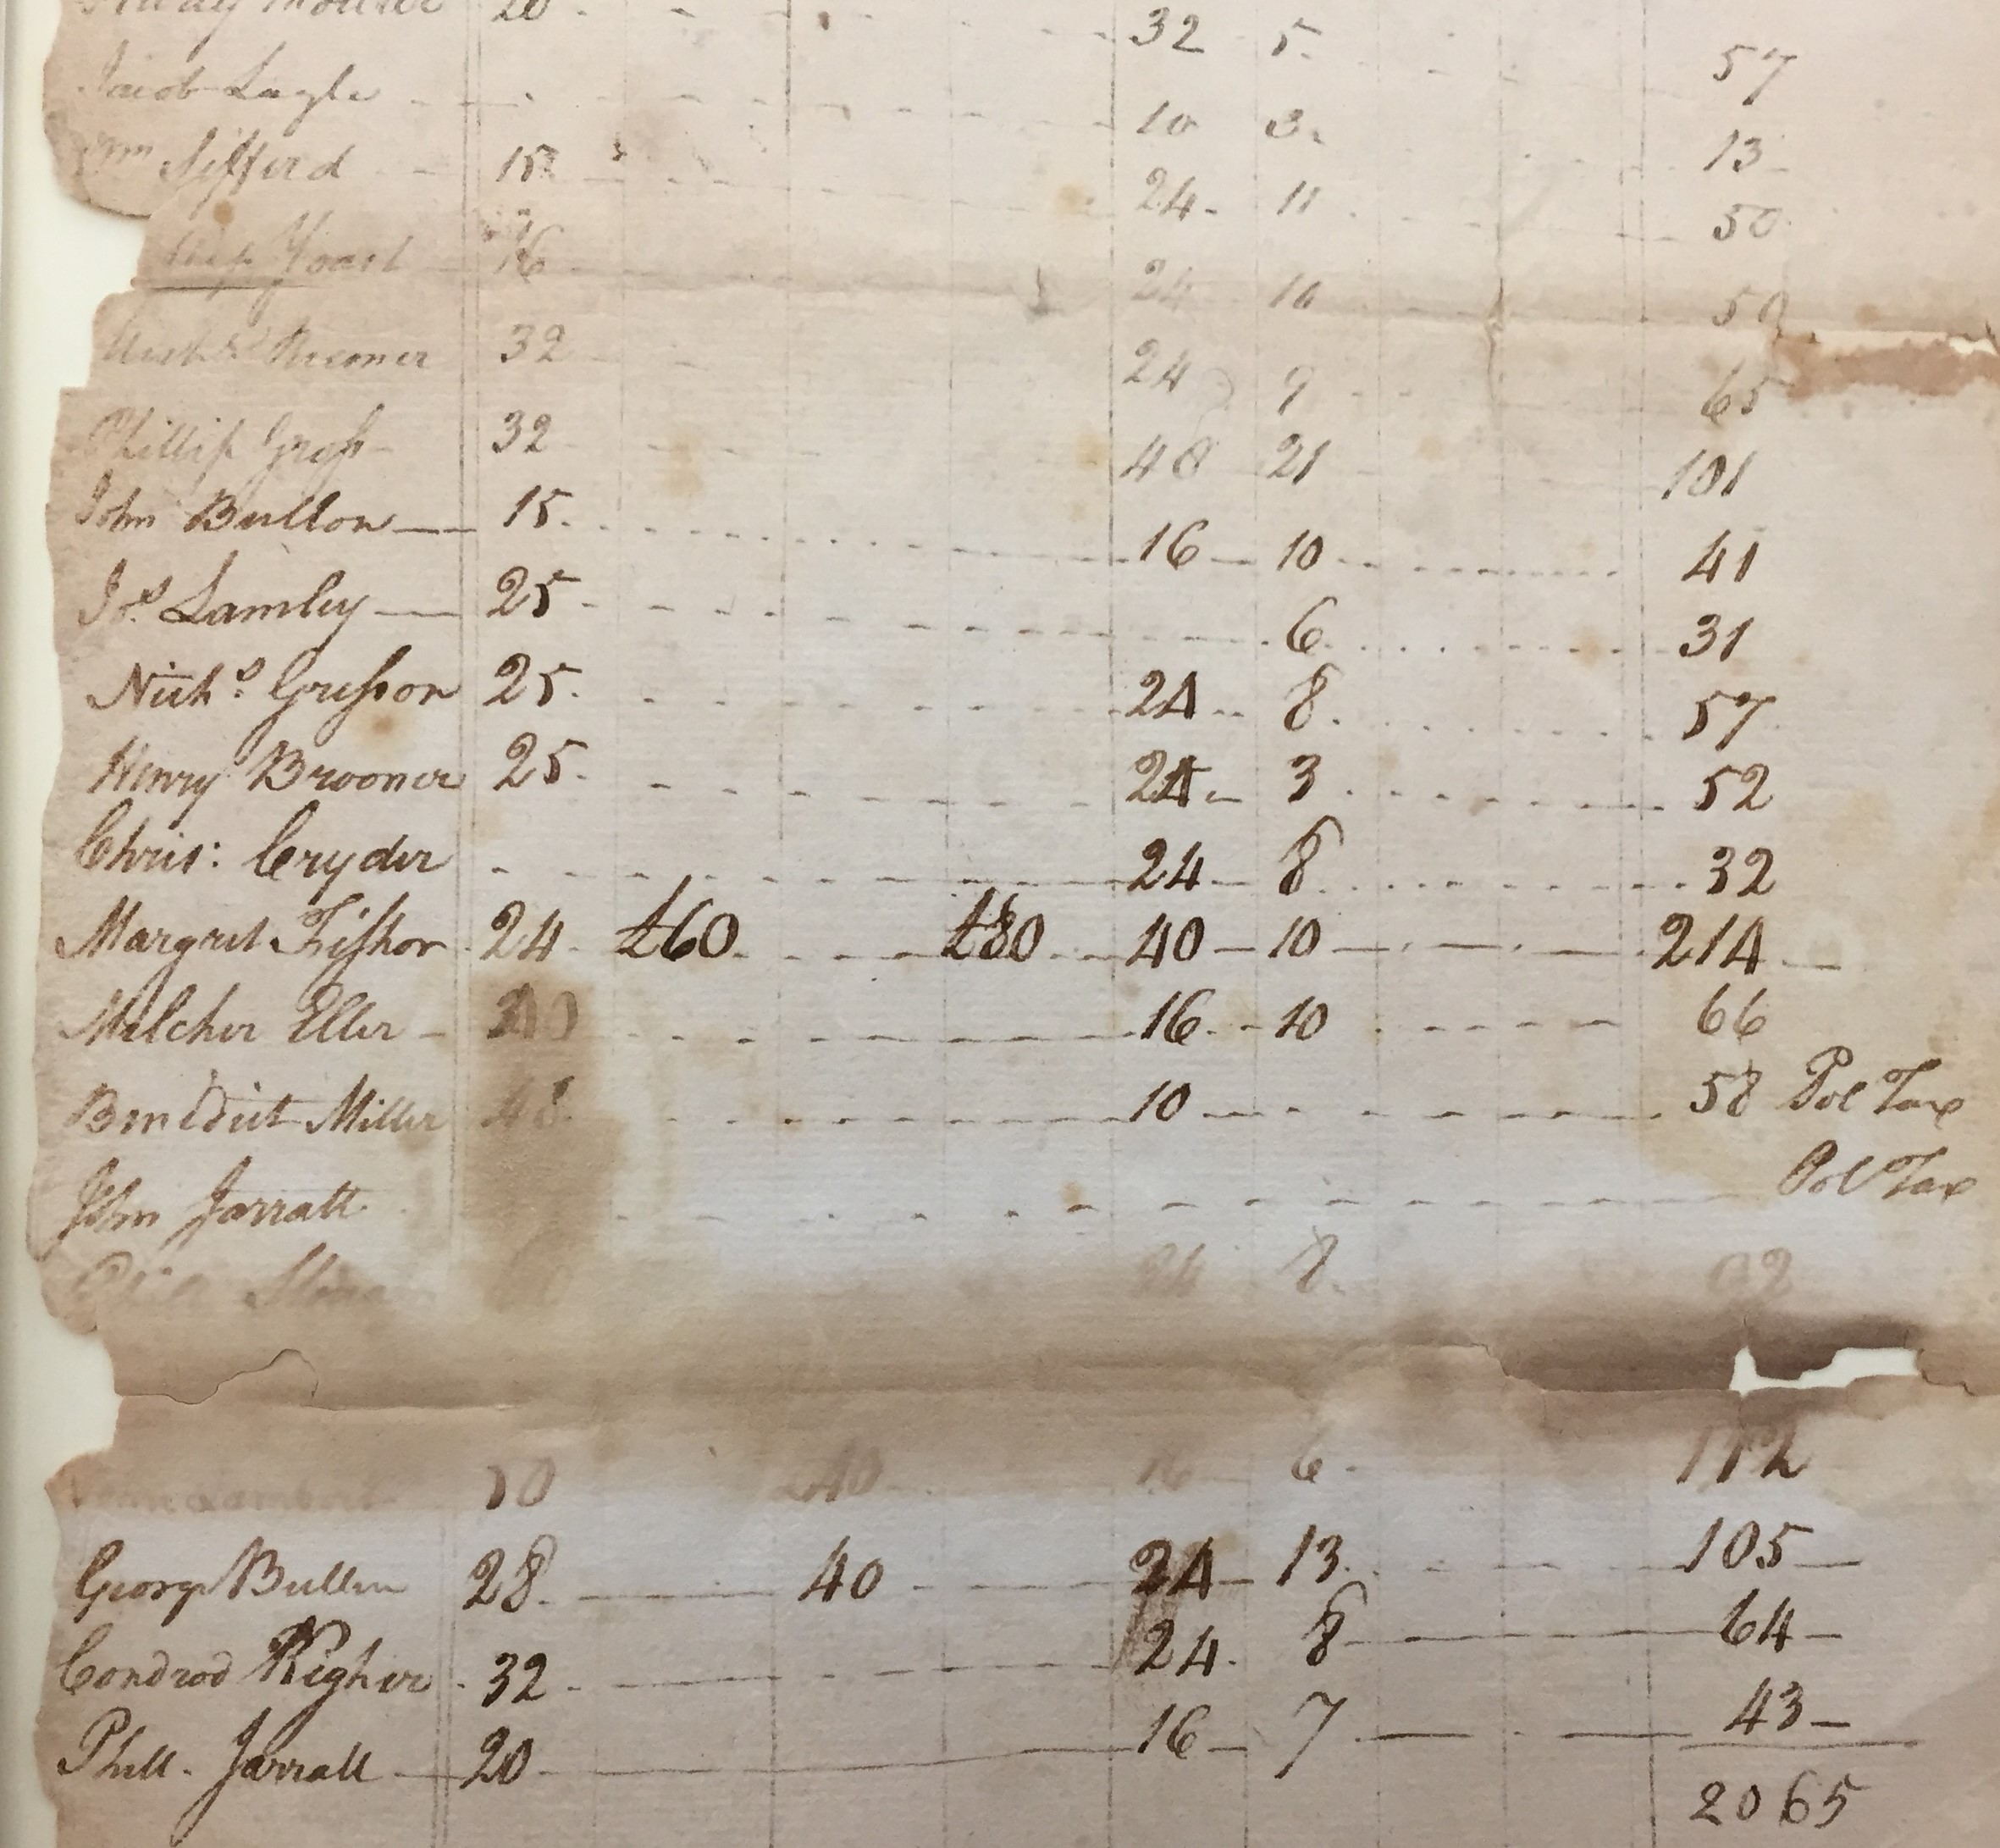 20 32 5 57
Jacob Lagle 10 3 13
Wm Sifferd 15 24 11 50
Yoast 16 24 10 50
Kreoner 32 24 9 65
Phillip Gross 32 48 21 101
John Bullon 15 16 10 41
Jos. Lamley 25 6 31
Nichs. Grusson 25 24 8 57
Henry Brooner 25 24 3 52
Chris: Cryder 24 8 32
Margret Fishor 24 £60 £80 40 10 214
Melcher Eller 40 16 10 66
Benedict Miller 48 10 58 Pol Tax
John Jarratt Pol Tax
Phill 24 8
Lambert 50 40 16 6 112
George Bullen 28 40 24 13 105
Condrod Righer 32 24 8 64
Phill. Jarratt 20 16 7 43
2065